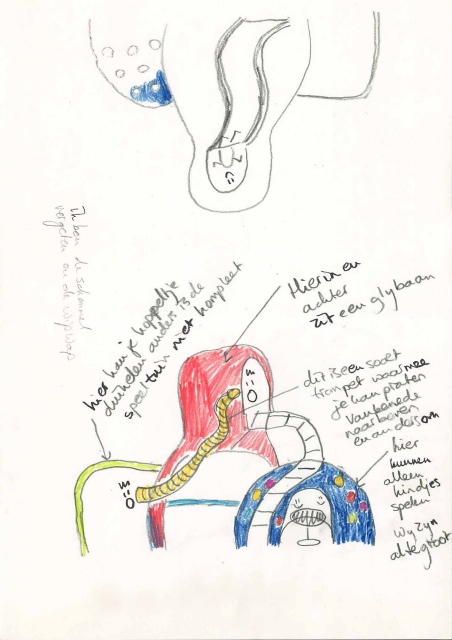 Ik ben de schommel
vergeten en de wipwap
hier kan je koppeltje
duikelen anders is de
speeltuin niet kompleet
Hierin en
achter
zit een glybaan
dit is een soort
trompet waarmee
je kan praten
van benede
naar boven
en andersom
hier
kunnen
alleen
kindjes
spelen
wy zyn
al te groot